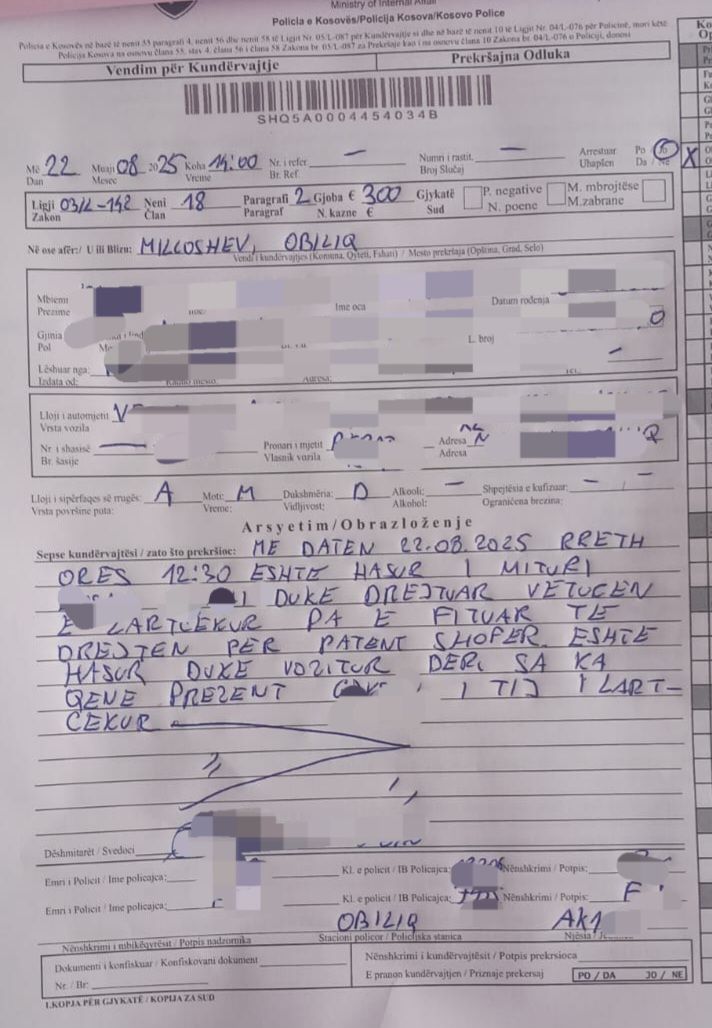 Ministry of Internal Affair
Policia e Kosovës/Policija Kosova/Kosovo Police
Policia e Kosovës në bazë të nenit 55 paragrafi 4, nenit 56 dhe nenit 58 të Ligjit Nr. 05/L-087 për Kundërvajtje si dhe në bazë të nenit 10 të Ligjit Nr. 04/L-076 për Policinë, mori këtë
Policija Kosova na osnovu člana 55, stav 4, člana 56 i člana 58 Zakona br. 05/L-087 za Prekršaje kao i na osnovu člana 10 Zakona br. 04/L-076 o Policiji, donosi
Vendim për Kundërvajtje Prekršajna Odluka
SHQ5A0004454034B
Më 22 Muaji 08 2025 Koha 14:00 Nr. i refer. — Numri i rastit. — Arrestuar Po Jo
Dan Mesec Vreme Br. Ref Broj Slučaj Uhapšen Da / Ne X
Ligji 03/L-142 Neni 18 Paragrafi 2 Gjoba € 300 Gjykatë P. negative M. mbrojtëse
Zakon Član Paragraf N. kazne € Sud N. poene M.zabrane
Në ose afër:/ U ili Blizu: MILLOSHEV, OBILIQ
Vendi i kundërvajtjes (Komuna, Qyteti, Fshati) / Mesto prekršaja (Opština, Grad, Selo)
Mbiemri
Prezime Ime oca Datum rođenja
Gjinia
Pol L. broj
Lëshuar nga:
Izdata od: Adresa:
Lloji i automjetit V
Vrsta vozila
Nr. i shasisë Pronari i mjetit Adresa
Br. šasije Vlasnik vozila Adresa
Lloji i sipërfaqes së rrugës: A Moti: M Dukshmëria: D Alkooli: — Shpejtësia e kufizuar: —
Vrsta površine puta: Vreme: Vidljivost: Alkohol: Ograničena brezina:
Arsyetim/Obrazloženje
Sepse kundërvajtësi / zato što prekršioc: ME DATEN 22.08.2025 RRETH
ORES 12:30 ESHTE HASUR I MITURI
DUKE DREJTUAR VETUGEN
E LARTCEKUR PA E FITUAR TE
DREJTEN PER PATENT SHOFER. ESHTE
HASUR DUKE VOZITUR DERI SA KA
QENE PREZENT I TIJ I LART-
CEKUR
Dëshmitarët / Svedoci
Emri i Policit / Ime policajca: Kl. e policit / IB Policajca: Nënshkrimi / Potpis:
Emri i Policit / Ime policajca: Kl. e policit / IB Policajca: Nënshkrimi / Potpis:
OBILIQ
Nënshkrimi i mbikëqyrësit / Potpis nadzornika Stacioni policor / Policijska stanica Njësia /
Dokumenti i konfiskuar / Konfiskovani dokument Nënshkrimi i kundërvajtësit / Potpis prekrsioca
Nr. / Br: E pranon kundërvajtjen / Priznaje prekersaj PO / DA JO / NE
1.KOPJA PËR GJYKATË / KOPIJA ZA SUD